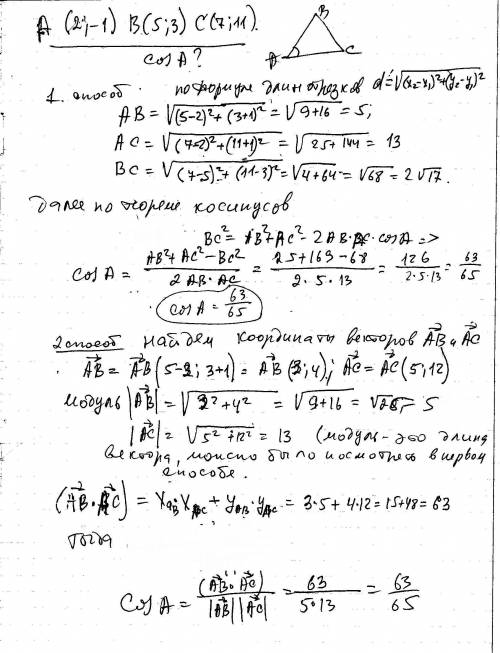 A (2;-1) B(5;3) C(7;11).
cos A?
B
A C
1. способ по формуле длин отрезков d=√(x₂-x₁)²+(y₂-y₁)²
AB = √(5-2)²+(3+1)² = √9+16 = 5;
AC = √(7-2)²+(11+1)² = √25+144 = 13
BC = √(7-5)²+(11-3)² = √4+64 = √68 = 2√17.
далее по теореме косинусов
BC² = AB²+AC²-2AB·AC·cosA =>
cosA = AB²+AC²-BC² / 2AB·AC = 25+169-68 / 2·5·13 = 126 / 2·5·13 = 63/65
cosA = 63/65
2 способ найдем координаты векторов AB и AC
AB = AB(5-2; 3+1) = AB(3;4); AC = AC(5;12)
модуль |AB| = √3²+4² = √9+16 = √25 = 5
|AC| = √5²+12² = 13 (модуль - это длина
вектора, можно было посмотреть в первом
способе.
(AB·AC) = X_AB·X_AC + Y_AB·Y_AC = 3·5+4·12=15+48=63
тогда
Cos A = (AB·AC) / |AB||AC| = 63 / 5·13 = 63/65